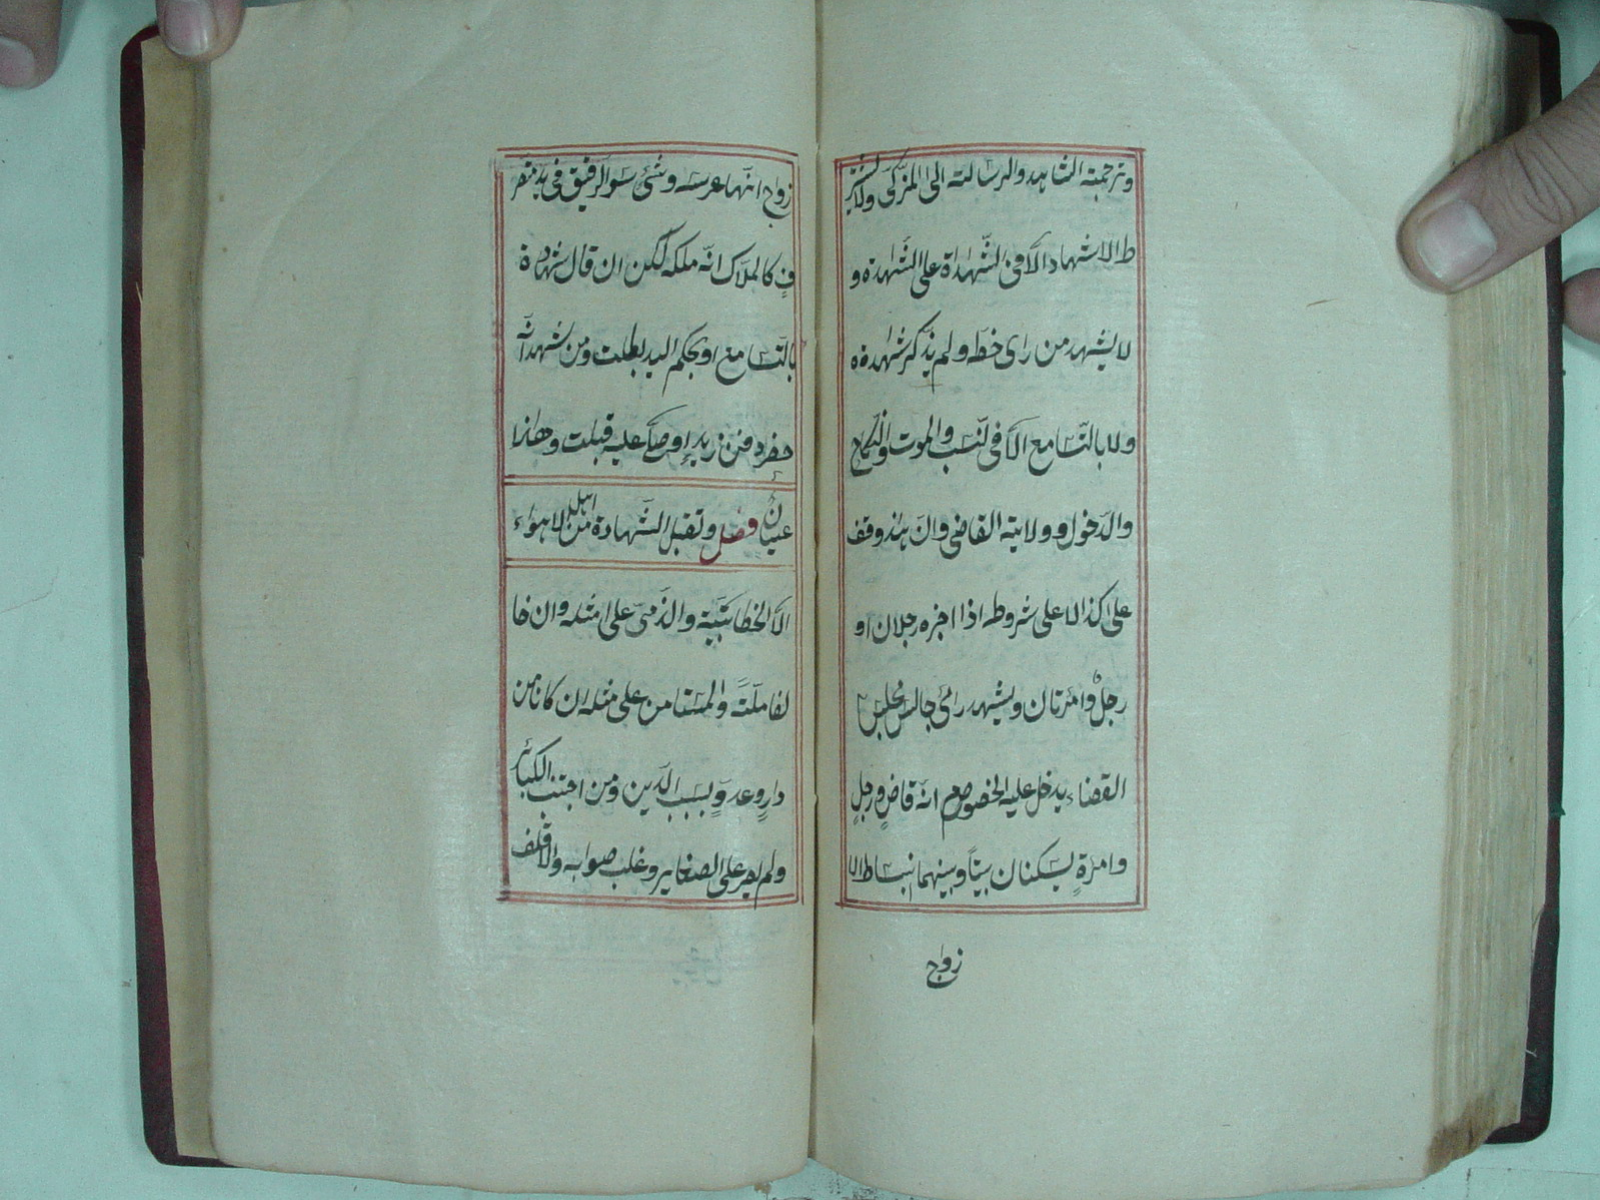 وترجمة الشاهد والرسالة الى المزكى ولا يشتر
ط الاشهاد الا فى الشهداة على الشهدة و
لا يشهد من راى خطه ولم يذكر شهادة ه
ولا بالتسامع الا فى النسب والموت والنكاح
والدخول وولاية القاضى وان هذ وقف
على كذا لا على شروطه اذا اخبره رجلان او
رجلٌ وامرتان ويشهد رائ جالس مجلس
القضاء يدخل عليه الخصوصم انه قاض ورجلٍ
وامرةٍ يسكنان بيتاً وبينهما انبساط الا
زواج
زواج انها عرسه وشئ سوا الرقيق فى يد متصر
فٍ كالملاك انه ملكه لكن ان قال شهادة
بالتسامع او بحكم اليد بطلت ومن شهد انه
حضر دفن زيد او صلى عليه قبلت وهاذا
عيانٌ فصل وتقبل الشهادة من اهل لاهواء
الا الخطابية والذمى على امثله وان خا
لفا ملةً والمستامن على مثله ان كانا من
دارٍ وعدوٍ بسبب الدين ومن اجتنب الكبائر
ولم يصر على الصغاير وغلب صوابه والاقلف